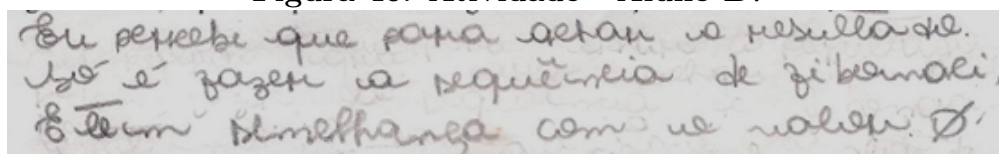 Eu percebi que para gerar o resultado.
Só é fazer a sequência de fibonaci,
E tem semelhança com o valor Ø.